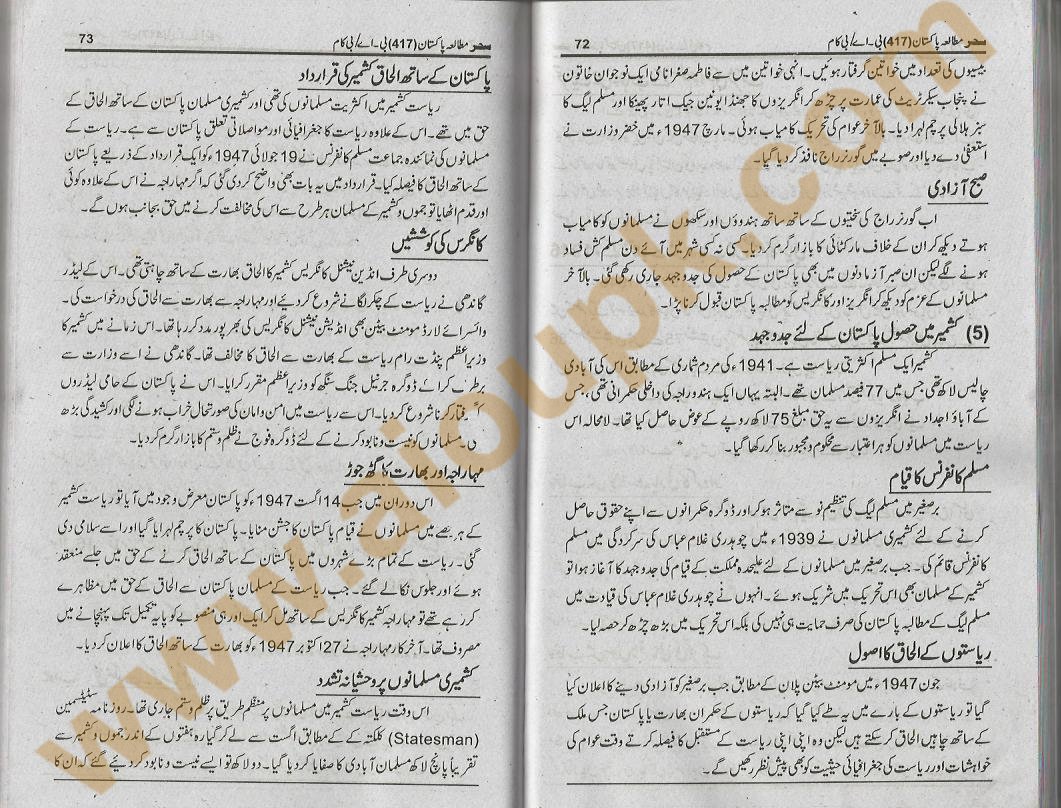 سحر مطالعہ پاکستان (417) بی۔اے/بی کام 72
بیسیوں کی تعداد میں خواتین گرفتار ہوئیں۔ انہی خواتین میں سے فاطمہ صغرا نامی ایک نوجوان خاتون
نے پنجاب سیکرٹریٹ کی عمارت پر چڑھ کر انگریزوں کا جھنڈا یونین جیک اتار پھینکا اور مسلم لیگ کا
سبز ہلالی پرچم لہرا دیا۔ بالآخر عوام کی تحریک کامیاب ہوئی۔ مارچ 1947ء میں خضر وزارت نے
استعفیٰ دے دیا اور صوبے میں گورنر راج نافذ کر دیا گیا۔
صبح آزادی
اب گورنر راج کی سختیوں کے ساتھ ساتھ ہندوؤں اور سکھوں نے مسلمانوں کو کامیاب
ہوتے دیکھ کر ان کے خلاف مار کٹائی کا بازار گرم کر دیا۔ کسی نہ کسی شہر میں آئے دن مسلم کش فساد
ہونے لگے لیکن ان صبر آزما دنوں میں بھی پاکستان کے حصول کی جدوجہد جاری رکھی گئی۔ بالآخر
مسلمانوں کے عزم کو دیکھ کر انگریز اور کانگریس کو مطالبہ پاکستان قبول کرنا پڑا۔
(5) کشمیر میں حصول پاکستان کے لئے جدوجہد
کشمیر ایک مسلم اکثریتی ریاست ہے۔ 1941ء کی مردم شماری کے مطابق اس کی آبادی
چالیس لاکھ تھی جس میں 77 فیصد مسلمان تھے۔ البتہ یہاں ایک ہندو راجہ کی داخلی حکمرانی تھی، جس
کے آباؤ اجداد نے انگریزوں سے یہ حق مبلغ 75 لاکھ روپے کے عوض حاصل کیا تھا۔ لامحالہ اس
ریاست میں مسلمانوں کو ہر اعتبار سے محکوم و مجبور بنا کر رکھا گیا۔
مسلم کانفرنس کا قیام
برصغیر میں مسلم لیگ کی تنظیم نو سے متاثر ہو کر اور ڈوگرہ حکمرانوں سے اپنے حقوق حاصل
کرنے کے لئے کشمیری مسلمانوں نے 1939ء میں چوہدری غلام عباس کی سرکردگی میں مسلم
کانفرنس قائم کی۔ جب برصغیر میں مسلمانوں کے لئے علیحدہ مملکت کے قیام کی جدوجہد کا آغاز ہوا تو
کشمیر کے مسلمان بھی اس تحریک میں شریک ہوئے۔ انہوں نے چوہدری غلام عباس کی قیادت میں
مسلم لیگ کے مطالبہ پاکستان کی صرف حمایت ہی نہیں کی بلکہ اس تحریک میں بڑھ چڑھ کر حصہ لیا۔
ریاستوں کے الحاق کا اصول
جون 1947ء میں مومنٹ بیٹن پلان کے مطابق جب برصغیر کو آزادی دینے کا اعلان کیا
گیا تو ریاستوں کے بارے میں یہ طے کیا گیا کہ ریاستوں کے حکمران بھارت یا پاکستان جس ملک
کے ساتھ چاہیں الحاق کر سکتے ہیں لیکن وہ اپنی اپنی ریاست کے مستقبل کا فیصلہ کرتے وقت عوام کی
خواہشات اور ریاست کی جغرافیائی حیثیت کو بھی پیش نظر رکھیں گے۔
سحر مطالعہ پاکستان (417) بی۔اے/بی کام 73
پاکستان کے ساتھ الحاق کشمیر کی قرارداد
ریاست کشمیر میں اکثریت مسلمانوں کی تھی اور کشمیری مسلمان پاکستان کے ساتھ الحاق کے
حق میں تھے۔ اس کے علاوہ ریاست کا جغرافیائی اور مواصلاتی تعلق پاکستان سے ہے۔ ریاست کے
مسلمانوں کی نمائندہ جماعت مسلم کانفرنس نے 19 جولائی 1947ء کو ایک قرارداد کے ذریعے پاکستان
کے ساتھ الحاق کا فیصلہ کیا۔ قرارداد میں یہ بات بھی واضح کر دی گئی کہ اگر مہاراجہ نے اس کے علاوہ کوئی
اور قدم اٹھایا تو جموں و کشمیر کے مسلمان ہر طرح سے اس کی مخالفت کرنے میں حق بجانب ہوں گے۔
کانگرس کی کوششیں
دوسری طرف انڈین نیشنل کانگریس کشمیر کا الحاق بھارت کے ساتھ چاہتی تھی۔ اس کے لیڈر
گاندھی نے ریاست کے چکر لگانے شروع کر دیئے اور مہاراجہ سے بھارت سے الحاق کی درخواست کی۔
وائسرائے لارڈ مومنٹ بیٹن بھی انڈیشن نیشنل کانگریس کی بھرپور مدد کر رہا تھا۔ اس زمانے میں کشمیر کا
وزیر اعظم پنڈت رام ریاست کے بھارت سے الحاق کا مخالف تھا۔ گاندھی نے اسے وزارت سے
برطرف کرا کے ڈوگرہ جرنیل جنگ سنگھ کو وزیر اعظم مقرر کرایا۔ اس نے پاکستان کے حامی لیڈروں
گرفتار کرنا شروع کر دیا۔ اس سے ریاست میں امن و امان کی صورتحال خراب ہونے لگی اور کشیدگی بڑھ
ی۔ مسلمانوں کو نیست و نابود کرنے کے لئے ڈوگرہ فوج نے ظلم و ستم کا بازار گرم کر دیا۔
مہاراجہ اور بھارت کا گٹھ جوڑ
اس دوران میں جب 14 اگست 1947ء کو پاکستان معرض وجود میں آیا تو ریاست کشمیر
کے ہر حصے میں مسلمانوں نے قیام پاکستان کا جشن منایا۔ پاکستان کا پرچم لہرایا گیا اور اسے سلامی دی
گئی۔ ریاست کے تمام بڑے شہروں میں پاکستان کے ساتھ الحاق کرنے کے حق میں جلسے منعقد
ہوئے اور جلوس نکالے گئے۔ جب ریاست کے مسلمان پاکستان سے الحاق کے حق میں مظاہرے
کر رہے تھے تو مہاراجہ کشمیر کانگریس کے ساتھ مل کر ایک اور ہی منصوبے کو پایہ تکمیل تک پہنچانے میں
مصروف تھا۔ آخر کار مہاراجہ نے 27 اکتوبر 1947ء کو بھارت کے ساتھ الحاق کا اعلان کر دیا۔
کشمیری مسلمانوں پر وحشیانہ تشدد
اس وقت ریاست کشمیر میں مسلمانوں پر منظم طریق پر ظلم و ستم جاری تھا۔ روزنامہ سٹیٹسمین
(Statesman) کلکتہ کے مطابق اگست سے لے کر گیارہ ہفتوں کے اندر جموں و کشمیر سے
تقریباً پانچ لاکھ مسلمان آبادی کا صفایا کر دیا گیا۔ دو لاکھ تو ایسے نیست و نابود کر دیئے گئے کہ ان کا
www.aioupk.com